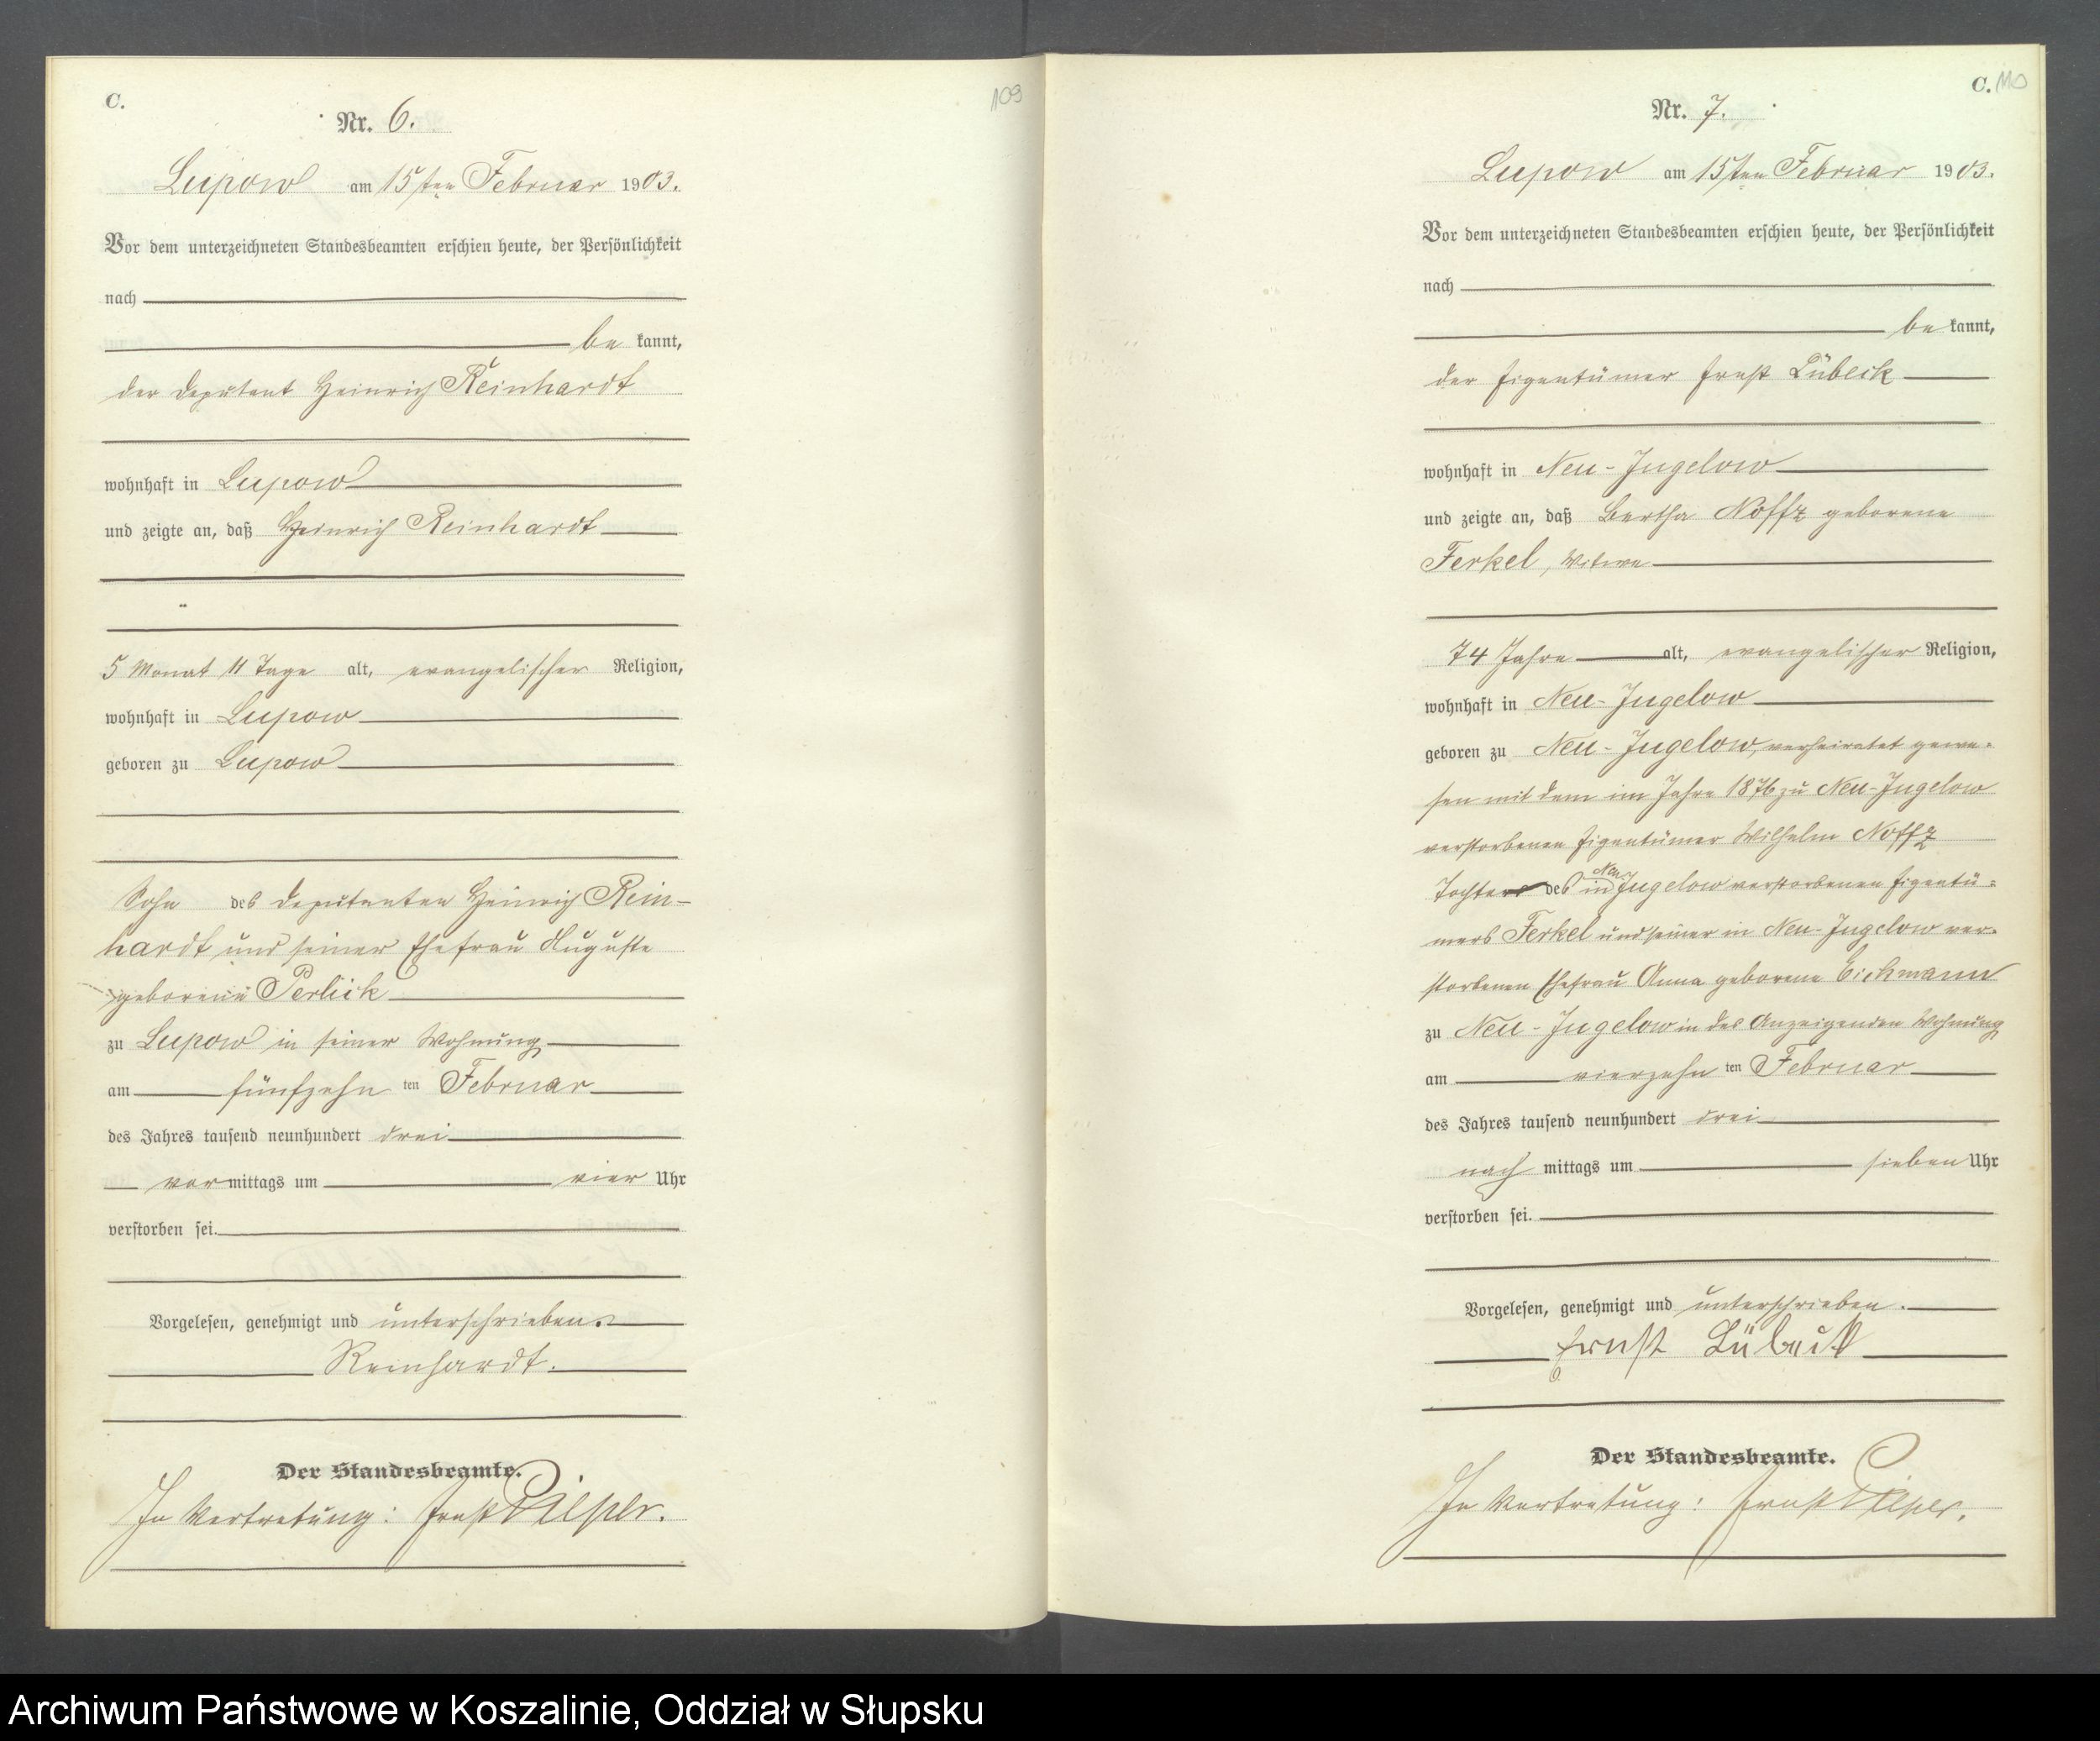 C.
109
Nr. 6.
Lupow am 15ten Februar 1903.
Vor dem unterzeichneten Standesbeamten erschien heute, der Persönlichkeit
nach
be kannt,
der Deputant Heinrich Reinhardt
wohnhaft in Lupow
und zeigte an, daß Heinrich Reinhardt
5 Monat 11 Tage alt, evangelischer Religion,
wohnhaft in Lupow
geboren zu Lupow
Sohn des Deputanten Heinrich Rein-
hardt und seiner Ehefrau Auguste
geborene Perlick
zu Lupow in seiner Wohnung
am fünfzehn ten Februar
des Jahres tausend neunhundert drei
vor mittags um vier Uhr
verstorben sei.
Vorgelesen, genehmigt und unterschrieben.
Reinhardt.
Der Standesbeamte.
In Vertretung: Ernst Pieper.
C. 110
Nr. 7.
Lupow am 15ten Februar 1903.
Vor dem unterzeichneten Standesbeamten erschien heute, der Persönlichkeit
nach
be kannt,
der Eigentümer Ernst Lübeck
wohnhaft in Neu-Jugelow
und zeigte an, daß Bertha Noffz geborene
Ferkel, Witwe
74 Jahre alt, evangelischer Religion,
wohnhaft in Neu-Jugelow
geboren zu Neu-Jugelow, verheiratet gewe-
sen mit dem im Jahre 1876 zu Neu-Jugelow
verstorbenen Eigentümer Wilhelm Noffz
Tochter des in Neu Jugelow verstorbenen Eigentü-
mers Ferkel und seiner in Neu-Jugelow ver-
storbenen Ehefrau Anna geborene Eickmann
zu Neu-Jugelow in des Anzeigenden Wohnung
am vierzehn ten Februar
des Jahres tausend neunhundert drei
nach mittags um sieben Uhr
verstorben sei.
Vorgelesen, genehmigt und unterschrieben.
Ernst Lübeck
Der Standesbeamte.
In Vertretung: Ernst Pieper.
Archiwum Państwowe w Koszalinie, Oddział w Słupsku